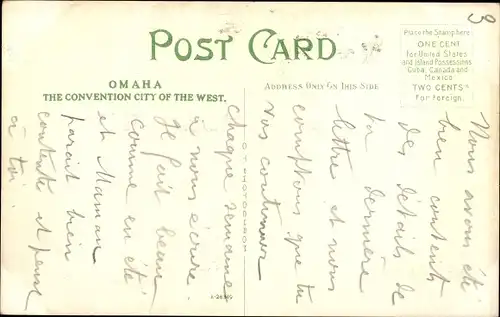 POST CARD
OMAHA
THE CONVENTION CITY OF THE WEST.
ADDRESS ONLY ON THIS SIDE
Place the Stamp here
ONE CENT
for United States
and Island Possessions
Cuba, Canada and
Mexico
TWO CENTS
for Foreign.
3
Nous avons été
bien contents
des détails de
ta dernière
lettre et nous
comptons que tu
vas continuer
chaque semaine
à nous écrire.
Il fait beau
comme en été
et Maman
parait bien
contente et pense
à toi.